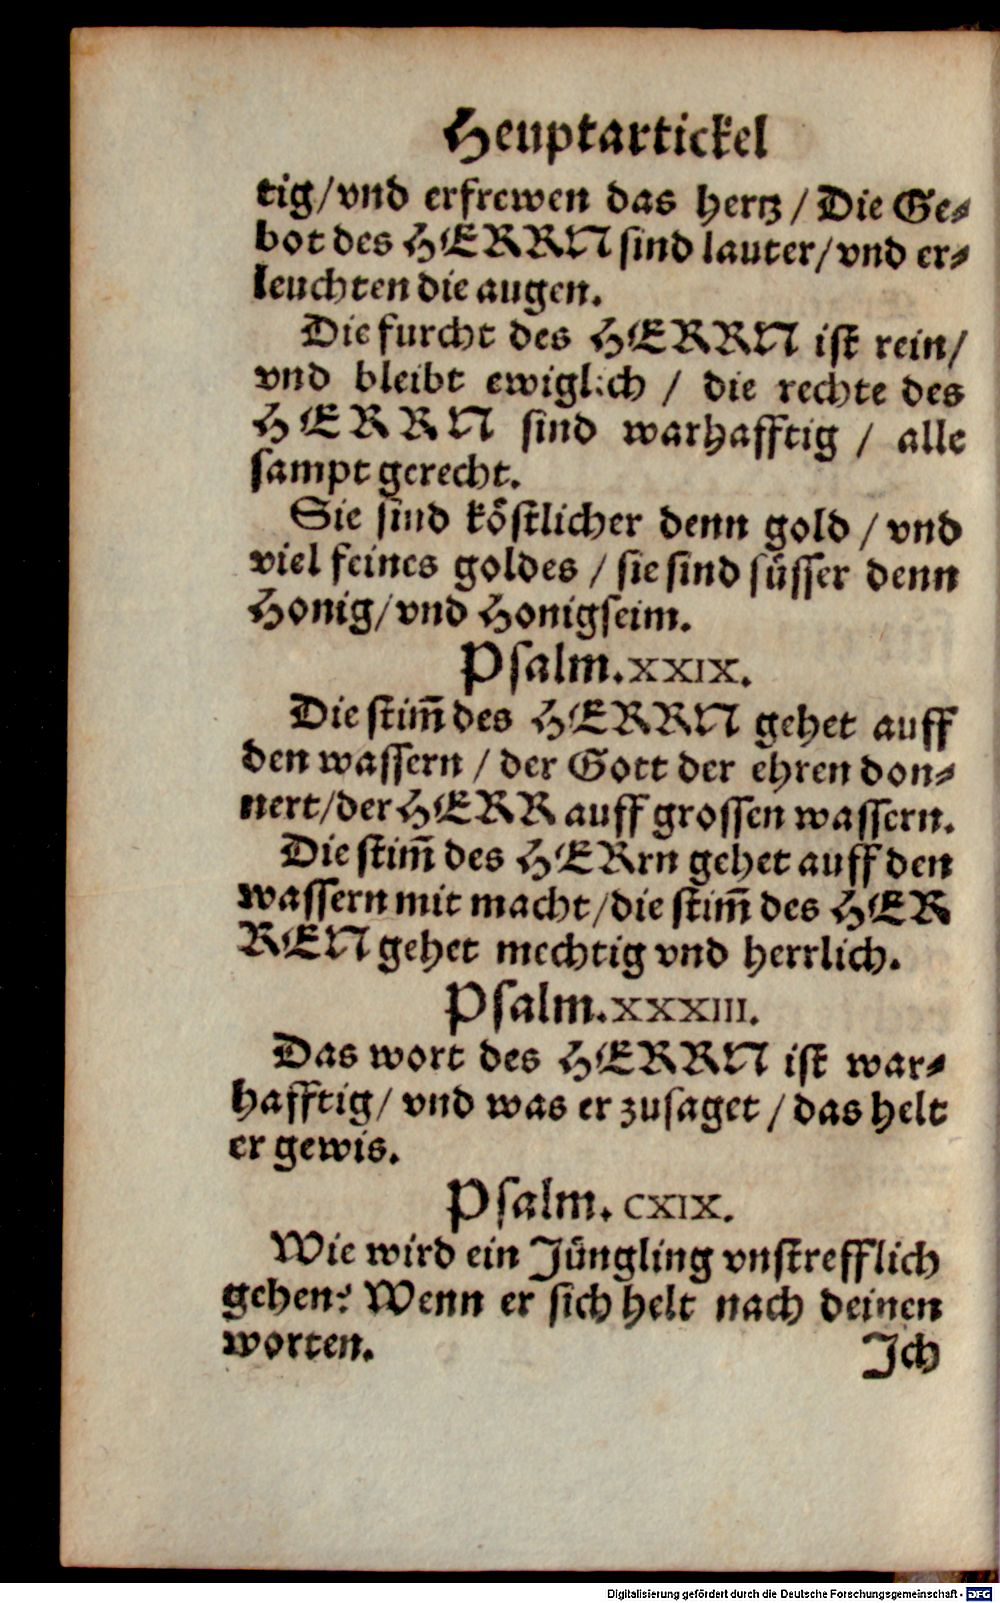 Heuptartickel
tig/vnd erfrewen das hertz / Die Ge⸗
bot des HERRN sind lauter/vnd er⸗
leuchten die augen.
Die furcht des HERRN ist rein/
vnd bleibt ewiglich / die rechte des
HERRN sind warhafftig / alle
sampt gerecht.
Sie sind koͤstlicher denn gold / vnd
viel feines goldes / sie sind suͤsser denn
Honig/vnd Honigseim.
Psalm.XXIX.
Die stim̃ des HERRN gehet auff
den wassern / der Gott der ehren don⸗
nert/der HERR auff grossen wassern.
Die stim̃ des HERrn gehet auff den
wassern mit macht/die stim̃ des HER
REN gehet mechtig vnd herrlich.
Psalm.XXXIII.
Das wort des HERRN ist war⸗
hafftig/ vnd was er zusaget / das helt
er gewis.
Psalm. CXIX.
Wie wird ein Juͤngling vnstrefflich
gehen? Wenn er sich helt nach deinen
worten. Jch
Digitalisierung gefördert durch die Deutsche Forschungsgemeinschaft - DFG